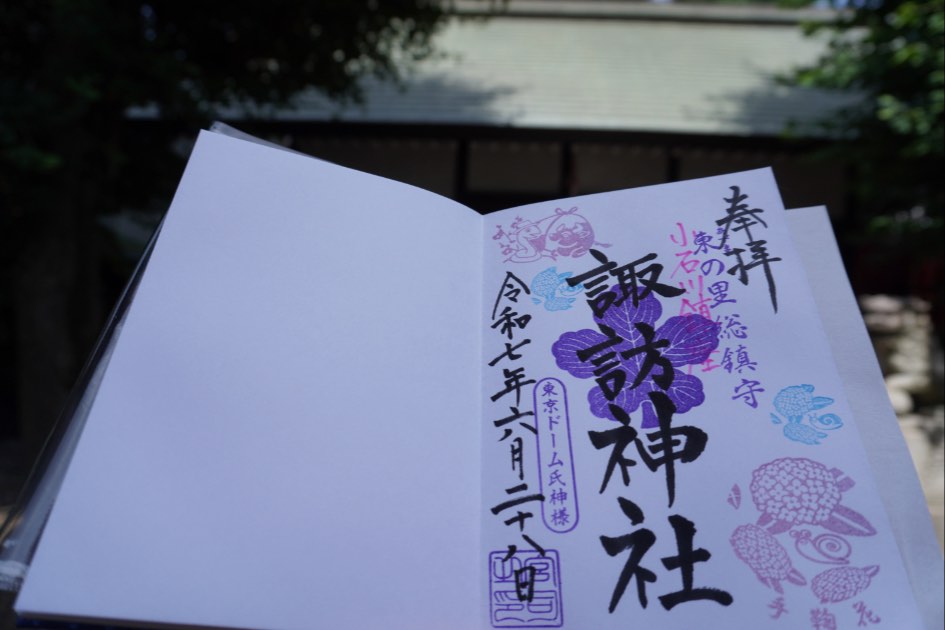 奉拝
東の里総鎮守
小石川鎮座
諏訪神社
東京ドーム氏神様
令和七年六月二十八日
手鞠花